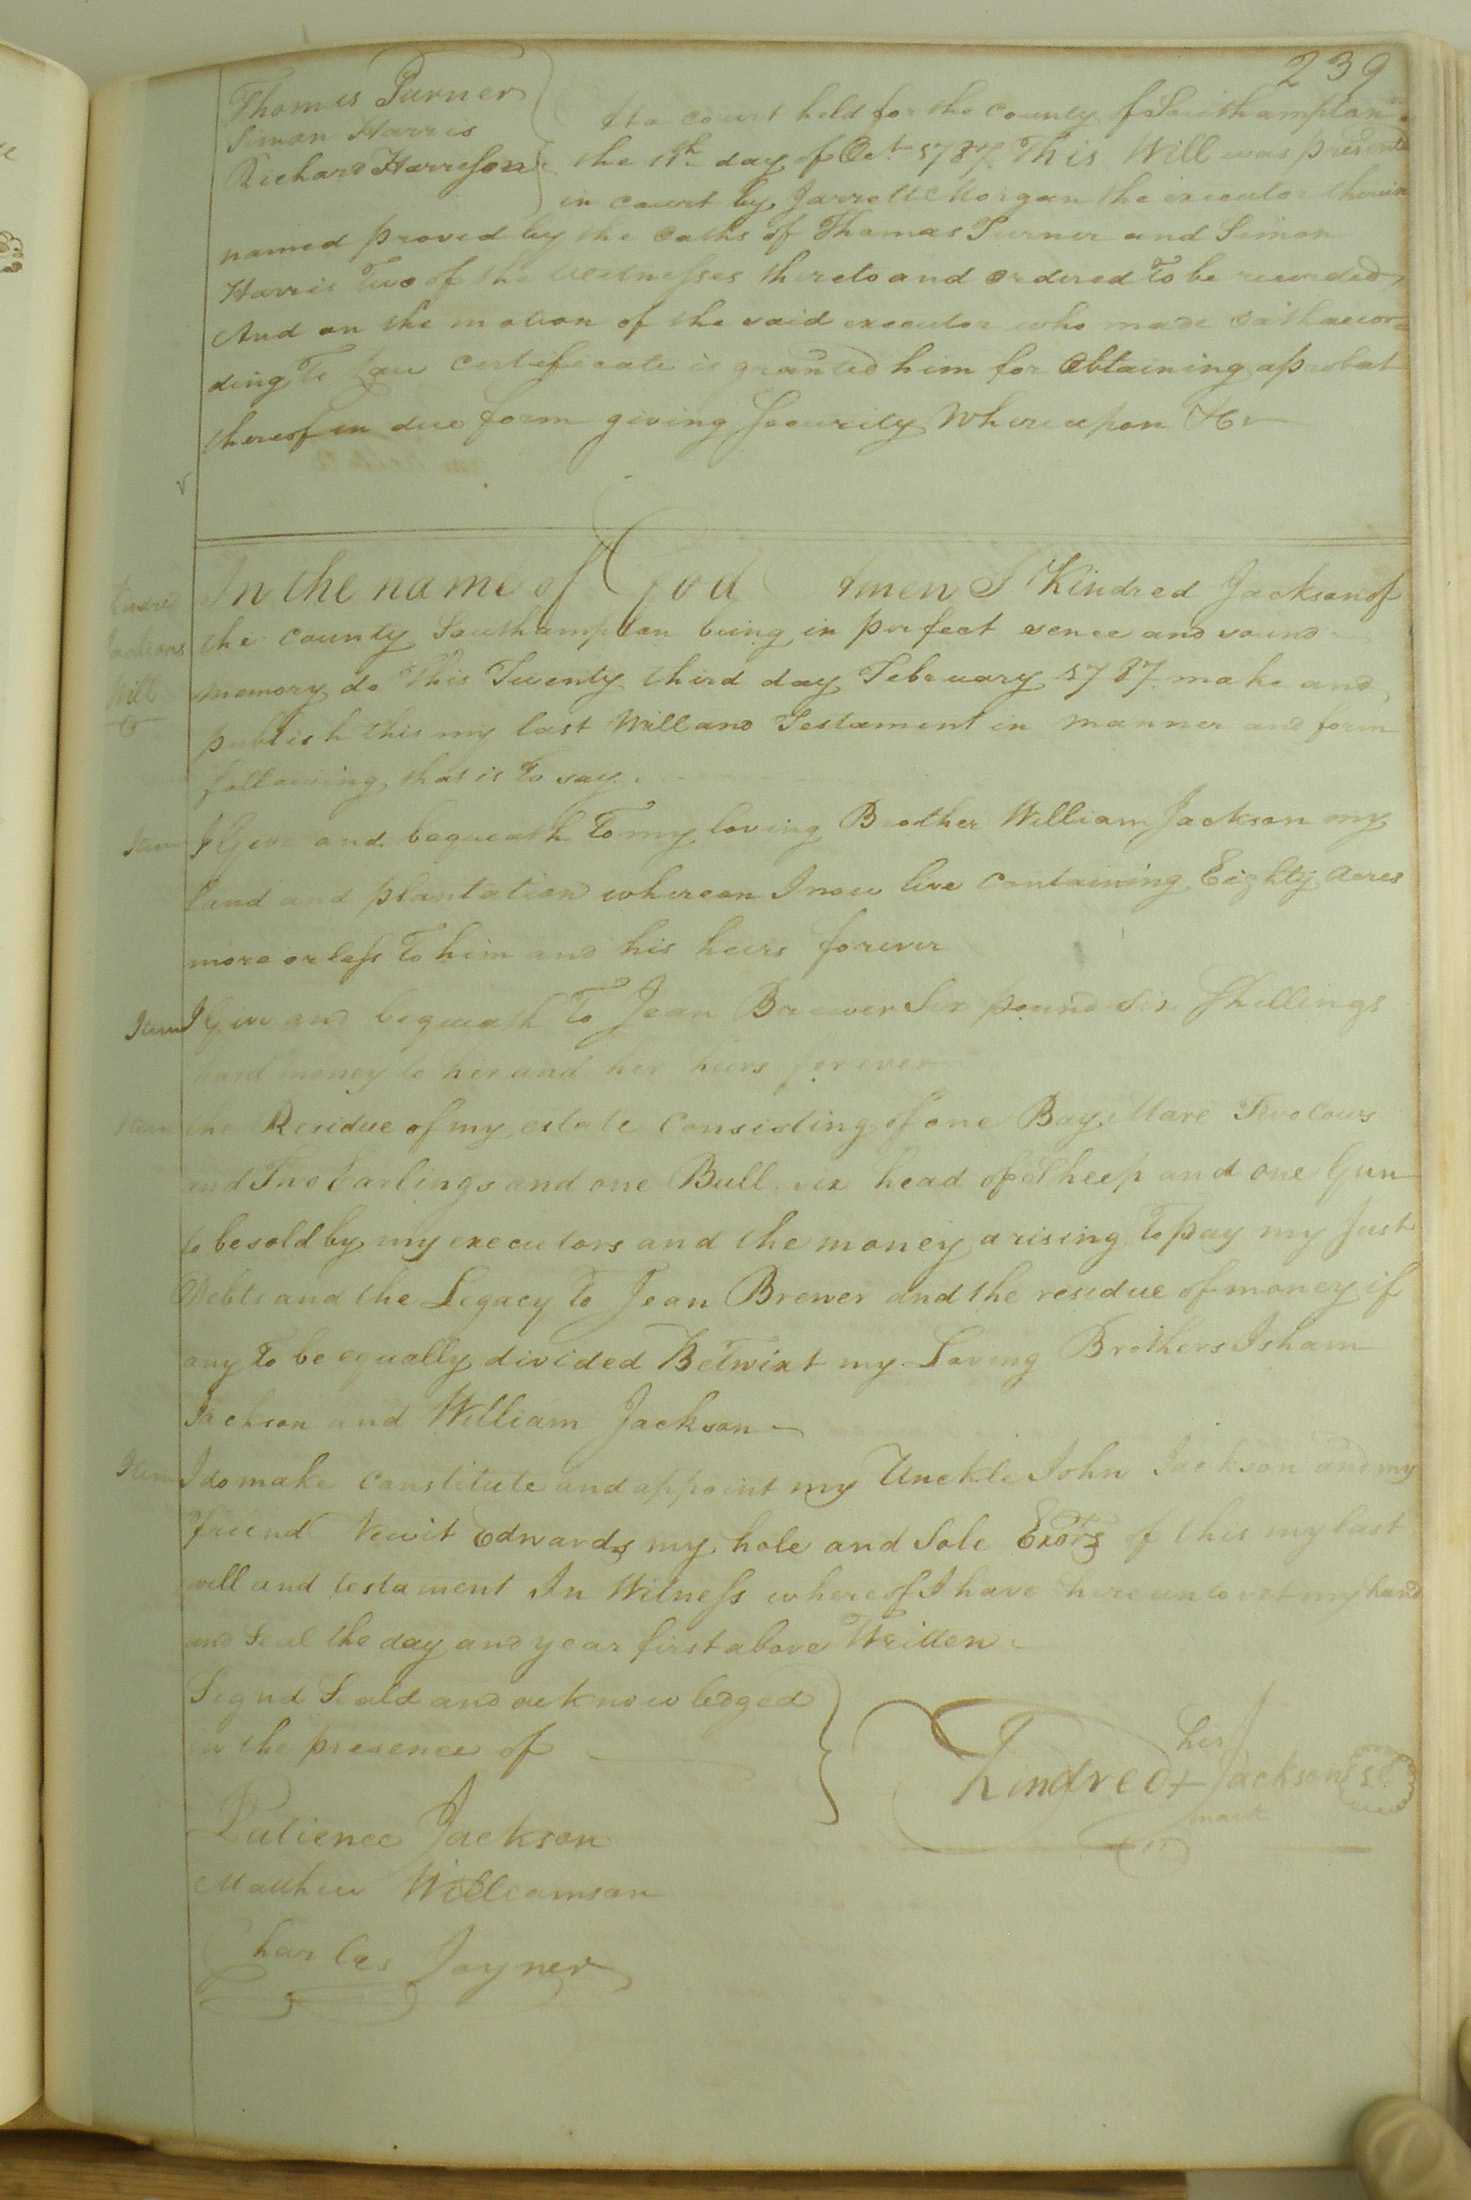 239
Thomas Turner
Simon Harris
Richard Harrison
At a court held for the county of Southampton
the 11th day of Oct 1787. This Will was presented
in court by Jarrell Morgan the executor therein
named proved by the oaths of Thomas Turner and Simon
Harris Two of the witnesses thereto and ordered To be recorded,
And on the motion of the said executor who made oath accor-
ding To Law certificate is granted him for Obtaining a probat
thereof in due form giving Security Whereupon &c
Kindred
Jacksons
Will
In the name of God Amen I Kindred Jackson of
the county Southampton being in perfect sence and sound
memory do This Twenty third day February 1787 make and
publish this my last Will and Testament in manner and form
following, that is To say.
Item I Give and bequeath To my loving Brother William Jackson my
land and plantation whereon I now live Containing Eighty acres
more or less To him and his heirs forever
Item I Give and bequeath To Jean Brewer Six pound Six Shillings
hard money to her and her heirs forever
Item the Residue of my estate Consisting of one Bay Mare Two cows
and Two Earlings and one Bull six head of Sheep and one Gun
to be sold by my executors and the money arising To pay my Just
Debts and the Legacy To Jean Brewer and the residue of money if
any To be equally divided Betwixt my Loving Brothers Isham
Jackson and William Jackson
Item I do make constitute and appoint my Unckle John Jackson and my
Friend Newit Edwards my hole and Sole Exors of this my last
will and testament In Witness whereof I have hereunto set my hand
and Seal the day and year first above Written
Signd Seald and acknowledged
in the presence of
his
Kindred + Jackson S.L.
mark
Patience Jackson
Matthew Williamson
Charles Joyner